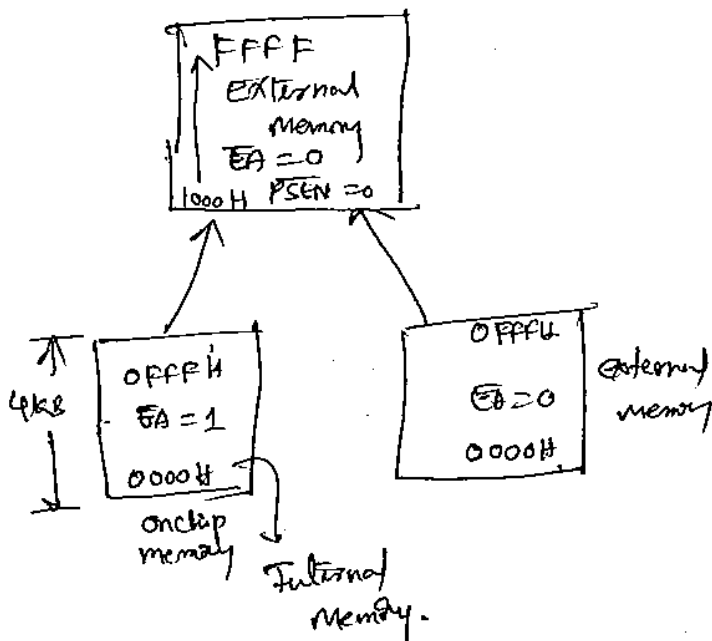 FFFF
External
Memory
E̅A̅ = 0
1000H P̅S̅E̅N̅ = 0
4KB
0FFFH
E̅A̅ = 1
0000H
onchip
memory
Internal
Memory.
0FFFH
E̅A̅ = 0
0000H
External
memory